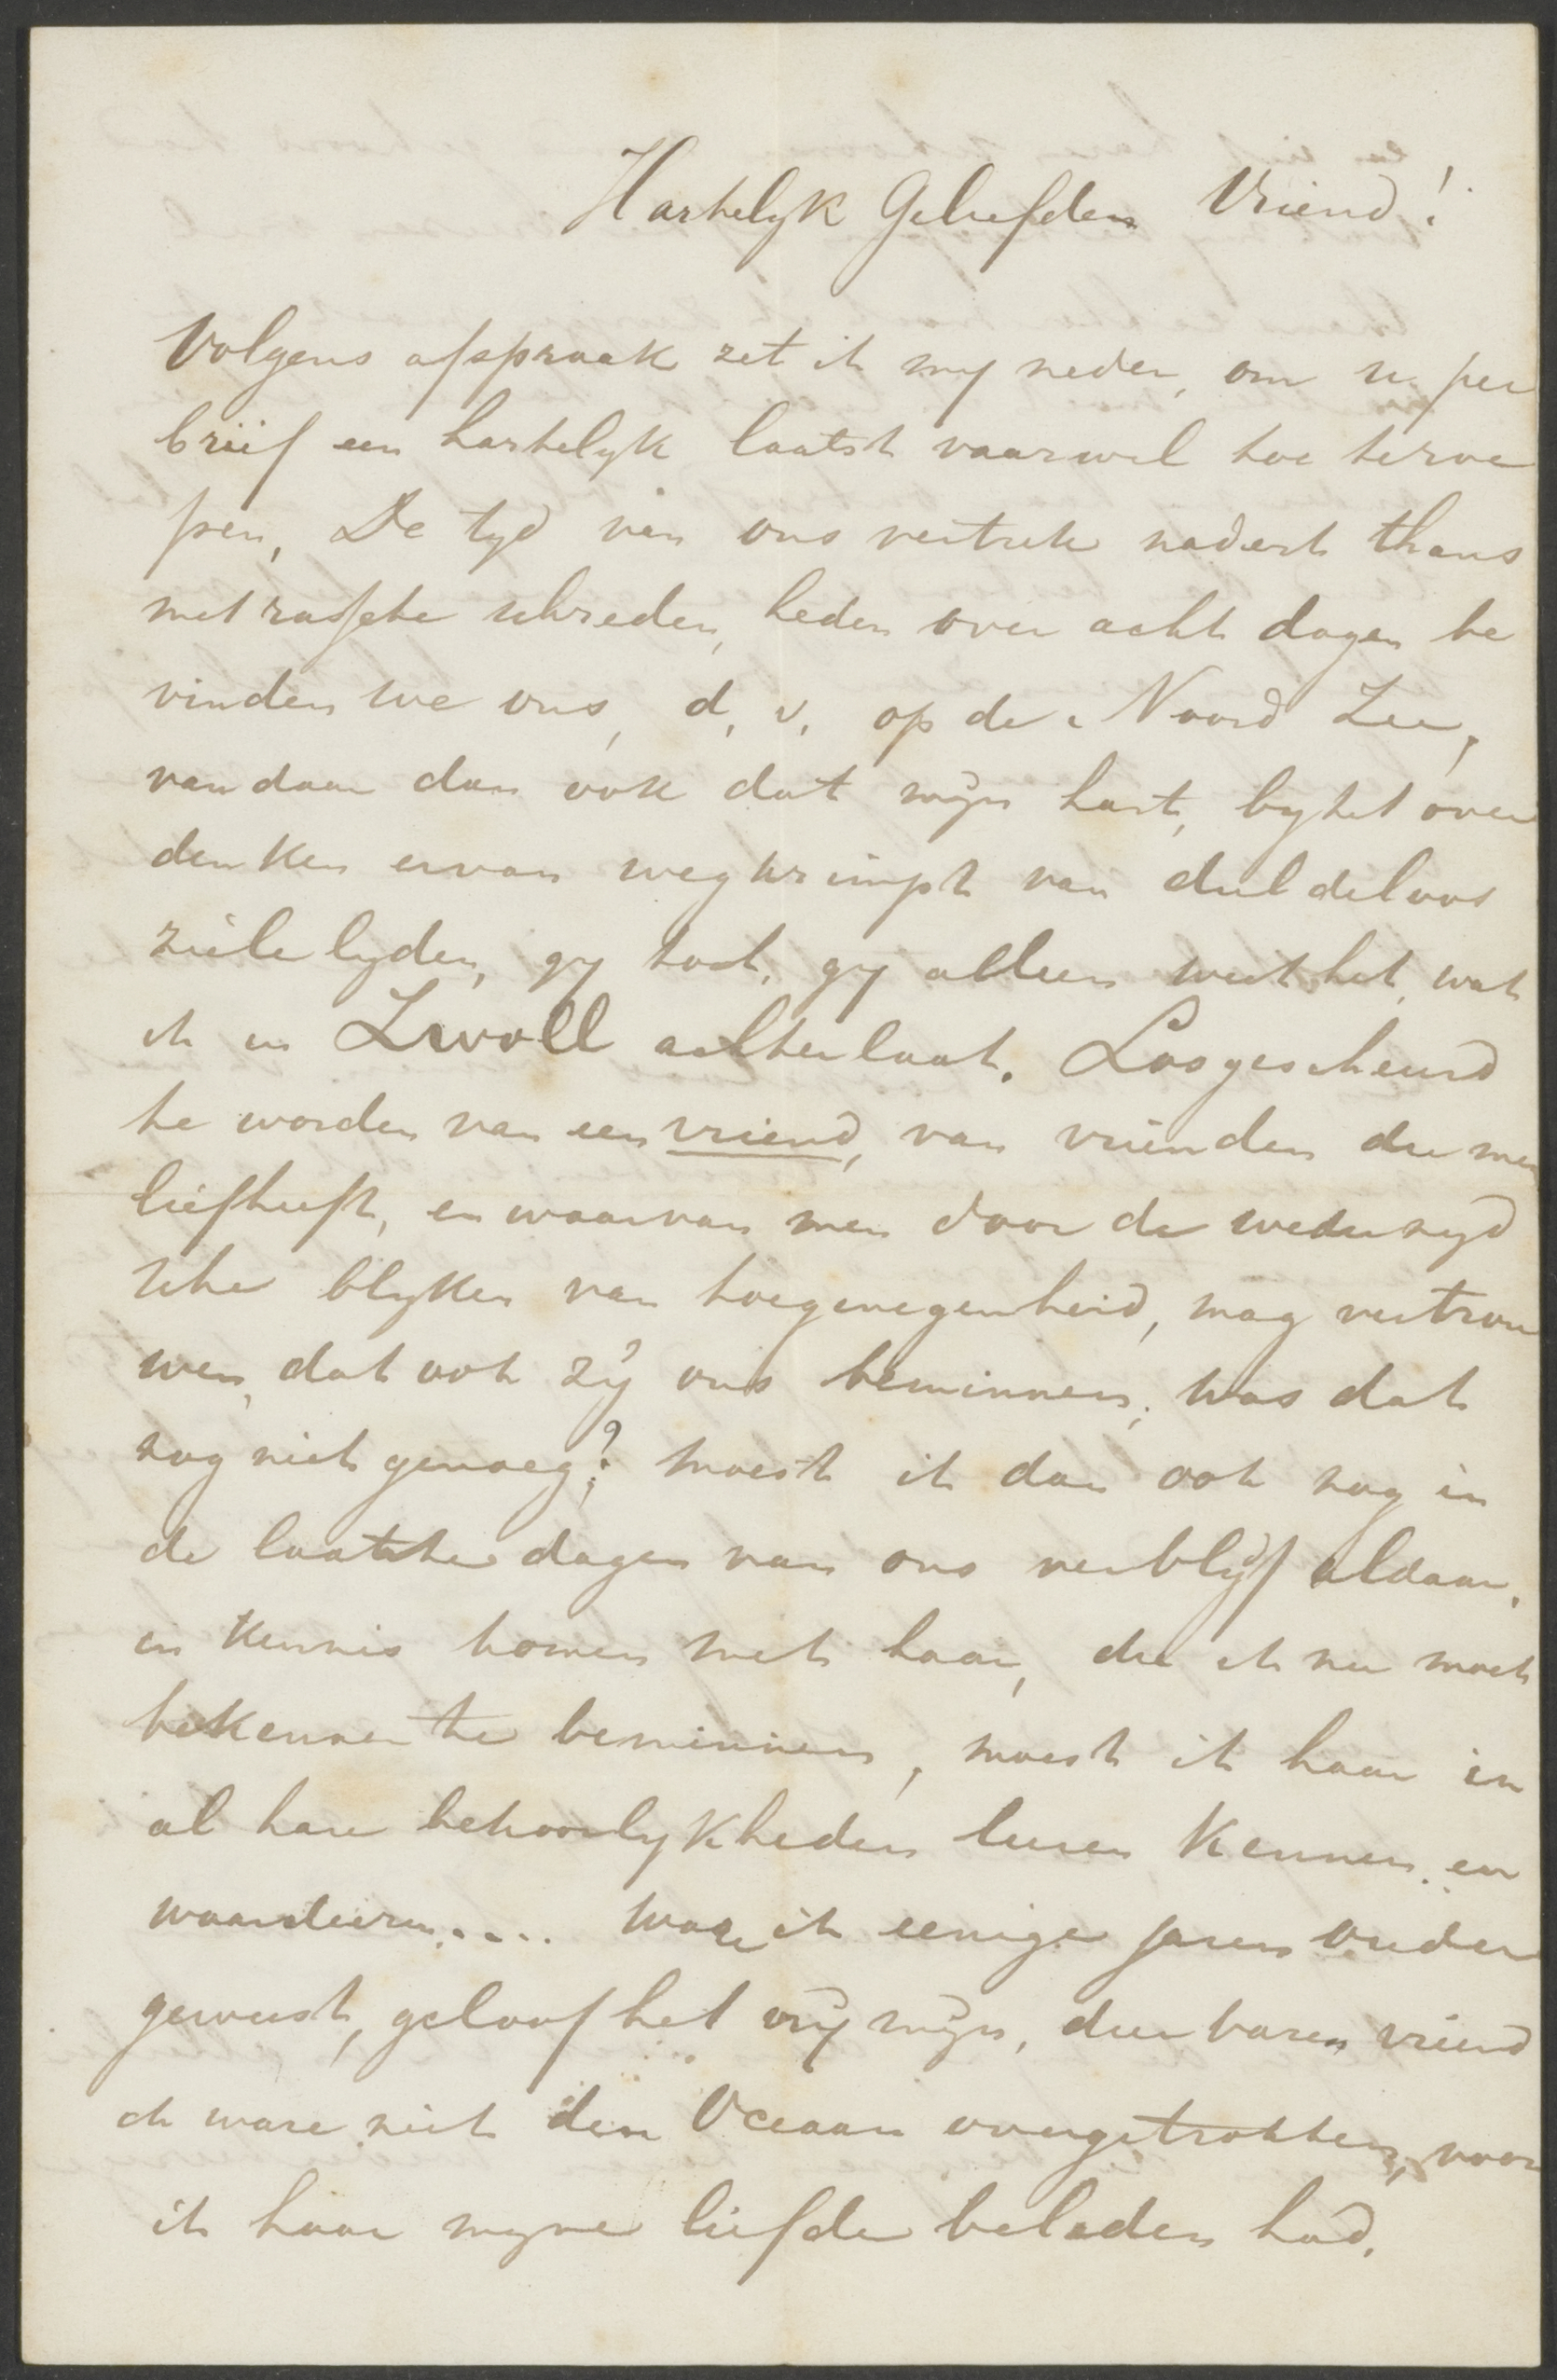 Hartelyk Geliefden Vriend!
Volgens afspraak zet ik my neder, om u per
brief een hartelyk laatst vaarwel toe teroe
pen, De tyd van ons vertrek nadert thans
met rassche schreden, heden over acht dagen be
vinden we ons, d. v. op de Noord Zee,
van daar dan ook dat mijn hart, by het over
denken ervan wegkrimpt van duldeloos
ziele lyden, gy toch, gy alleen weet het, wat
ik in Zwoll achterlaat. Losgescheurd
te worden van een vriend, van vrienden die men
liefheeft, en waarvan men door de wederzyd
sche blyken van toegenegenheid, mag vertrou
wen, dat ook zij ons beminnen; was dat
nog niet genoeg? moest ik dan ook nog in
de laatste dagen van ons verblijf aldaar,
in kennis komen met haar, die ik nu moet
bekennen te beminnen, moest ik haar in
al hare bekoorlykheden leeren kennen en
waardeeren.... ware ik eenige jaren ouder
geweest, geloof het vrij mijn, dierbaren vriend
ik ware niet den Oceaan overgetrokken, voor
ik haar myne liefde beleden had.